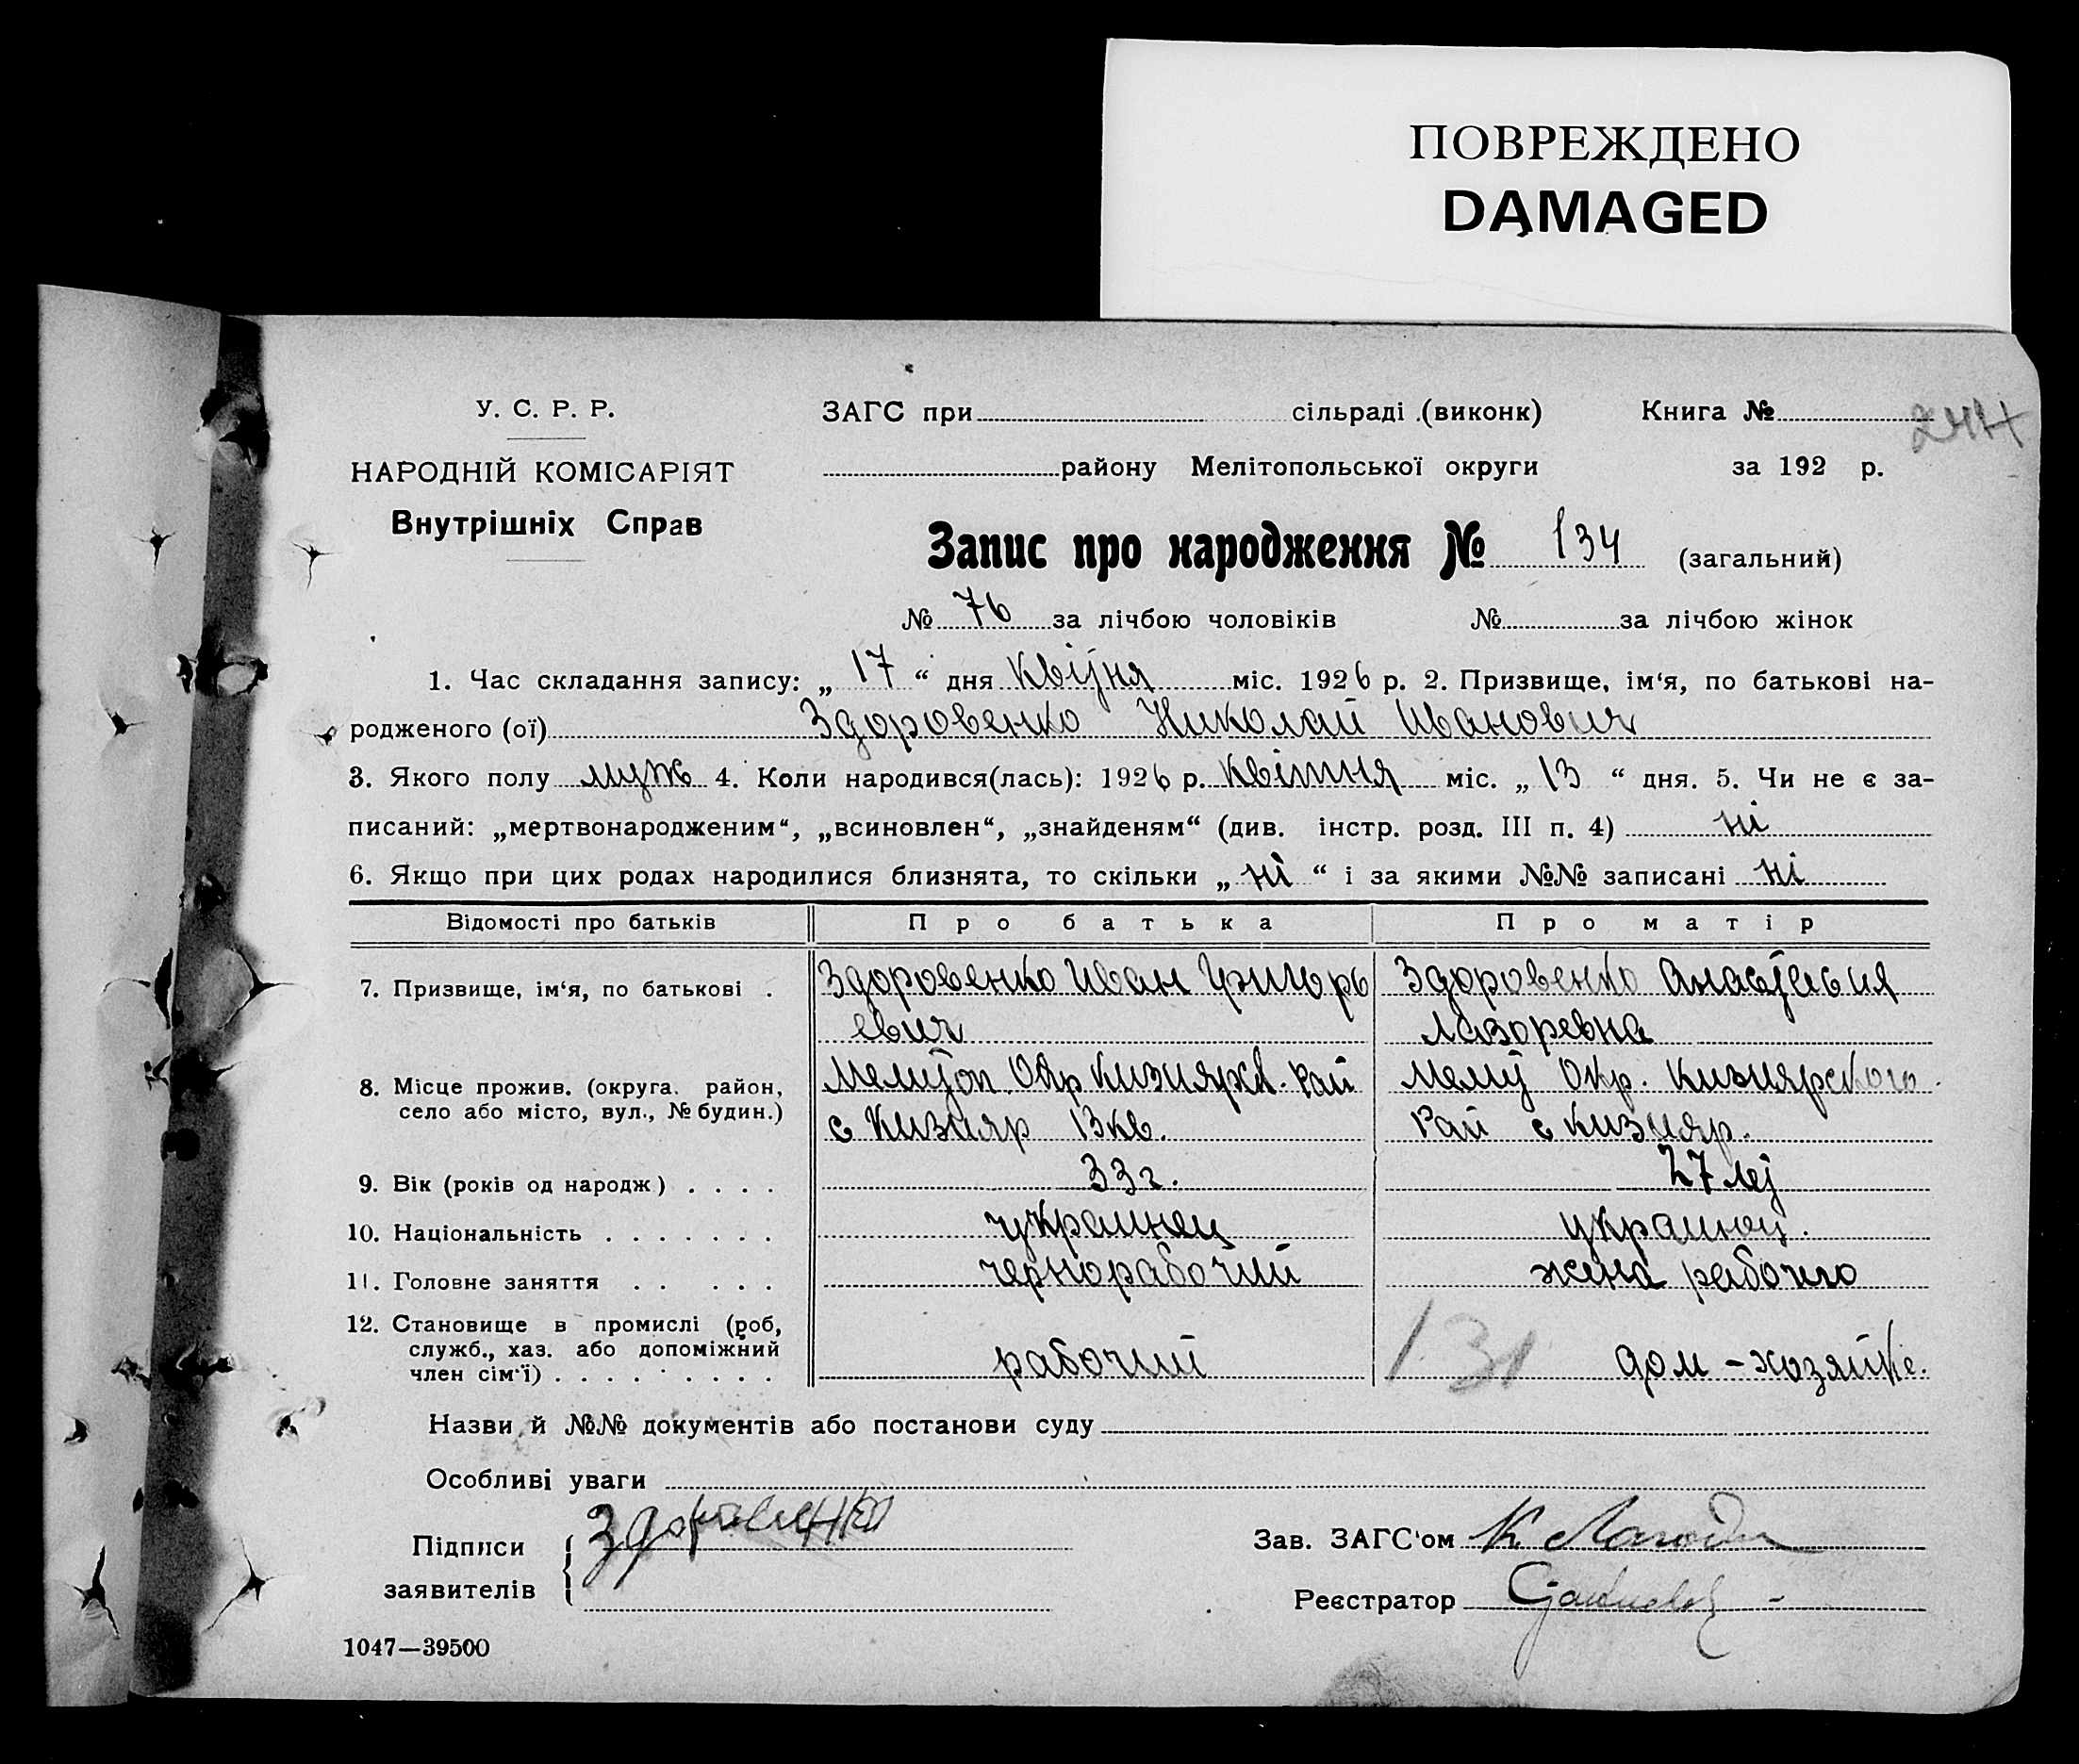 ПОВРЕЖДЕНО
DAMAGED
У. С. Р. Р.
НАРОДНІЙ КОМІСАРІЯТ
Внутрішніх Справ
ЗАГС при сільраді (виконк) Книга №
244
району Мелітопольської округи за 192 р.
Запис про народження № 134 (загальний)
№ 76 за лічбою чоловіків № за лічбою жінок
1. Час складання запису: „ 17 “ дня квітня міс. 1926 р. 2. Призвище, ім‘я, по батькові на-
родженого (ої) Здоровенко Николай Иванович
3. Якого полу муж 4. Коли народився(лась): 1926 р. квітня міс. „ 13 “ дня. 5. Чи не є за-
писаний: „мертвонародженим“, „всиновлен“, „знайденям“ (див. інстр. розд. III п. 4) ні
6. Якщо при цих родах народилися близнята, то скільки „ ні “ і за якими №№ записані ні
Відомості про батьків Про батька Про матір
7. Призвище, ім‘я, по батькові .
Здоровенко Иван Григорь
евич
Здоровенко Анастасия
Лазоревна
8. Місце прожив. (округа. район,
село або місто, вул., № будин.)
Мелитоп Окр Кизиярск. рай
с Кизияр 13 кв.
Мелит Окр. Кизиярского
Рай с Кизияр.
9. Вік (років од народж) . . . . 33 г. 27 лет
10. Національність . . . . . . . украинец украинец.
11. Головне заняття . . . . . чернорабочий жена рабочего
12. Становище в промислі (роб,
служб., хаз. або допоміжний
член сім‘ї) . . . . . . . . .
рабочий
131
дом-хозяйке.
Назви й №№ документів або постанови суду
Особливі уваги
Підписи
заявителів
Здоровенко
Зав. ЗАГС‘ом
Реєстратор
1047—39500